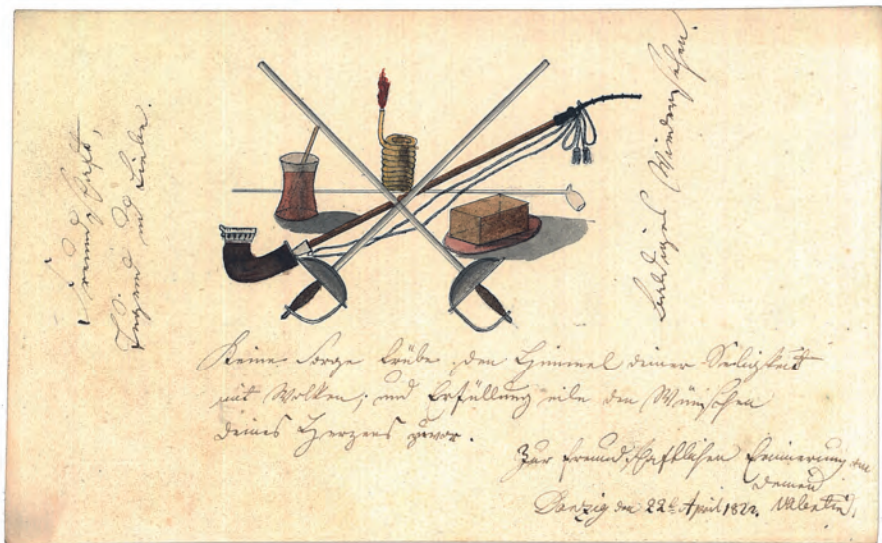 Freundschaft,
Tugend und Liebe.
baldiges Wiedersehen.
Keine Sorge trübe den Himmel deiner Seligkeit
mit Wolken; und Erfüllung eile den Wünschen
deines Herzens zuvor.
Zur freundschaftlichen Erinnerung an
deinen
Danzig den 22t April 1822. Valentin.